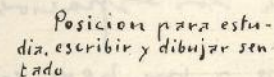 Posicion para estu-
dia, escribir y dibujar sen
tado